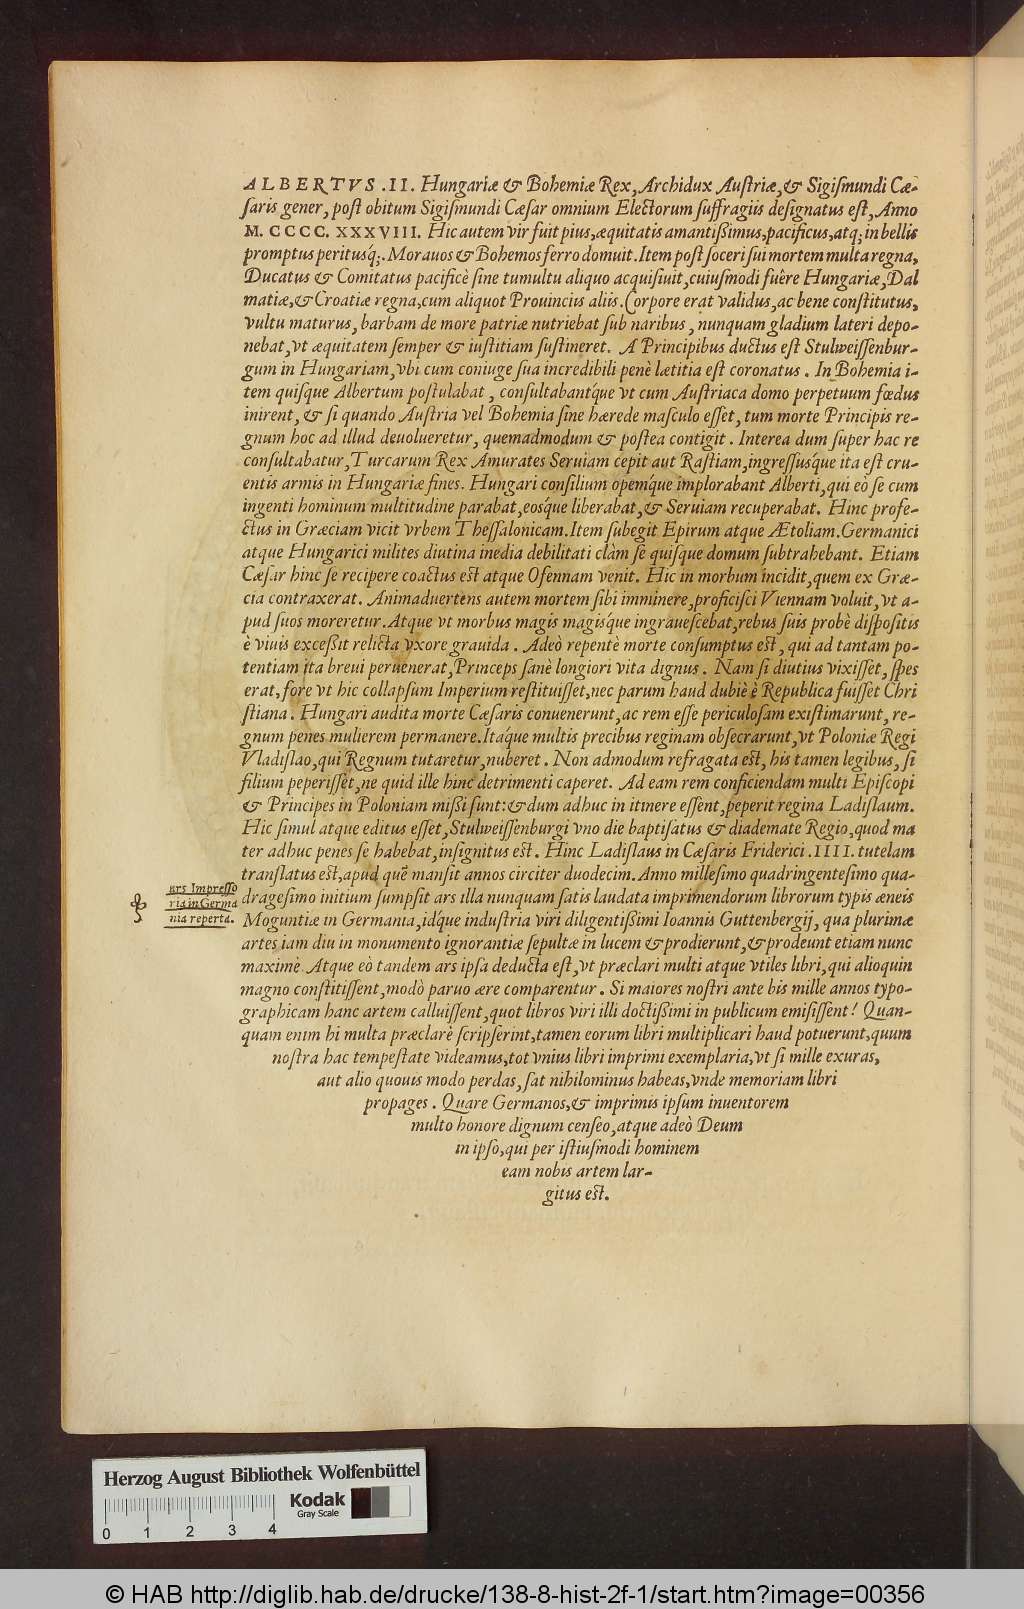 ALBERTVS .II. Hungariæ & Bohemiæ Rex, Archidux Auſtriæ, & Sigiſmundi Cæ-
ſaris gener, poſt obitum Sigiſmundi Cæſar omnium Electorum ſuffragiis deſignatus eſt, Anno
M. CCCC. XXXVIII. Hic autem vir fuit pius, æquitatis amantißimus, pacificus, atq; in bellis
promptus peritusq́;. Morauos & Bohemos ferro domuit. Item poſt ſoceri ſui mortem multa regna,
Ducatus & Comitatus pacificè ſine tumultu aliquo acquiſiuit, cuiuſmodi fuêre Hungariæ, Dal
matiæ, & Croatiæ regna, cum aliquot Prouinciis aliis. Corpore erat validus, ac bene conſtitutus,
vultu maturus, barbam de more patriæ nutriebat ſub naribus, nunquam gladium lateri depo-
nebat, vt æquitatem ſemper & iuſtitiam ſuſtineret. A Principibus ductus eſt Stulweiſſenbur-
gum in Hungariam, vbi cum coniuge ſua incredibili penè lætitia eſt coronatus. In Bohemia i-
tem quiſque Albertum poſtulabat, conſultabantq́ue vt cum Auſtriaca domo perpetuum fœdus
inirent, & ſi quando Auſtria vel Bohemia ſine hærede maſculo eſſet, tum morte Principis re-
gnum hoc ad illud deuolueretur, quemadmodum & poſtea contigit. Interea dum ſuper hac re
conſultabatur, Turcarum Rex Amurates Seruiam cepit aut Raſtiam, ingreſſusq́ue ita eſt cru-
entis armis in Hungariæ fines. Hungari conſilium opemq́ue implorabant Alberti, qui eò ſe cum
ingenti hominum multitudine parabat, eosq́ue liberabat, & Seruiam recuperabat. Hinc profe-
ctus in Græciam vicit vrbem Theſſalonicam. Item ſubegit Epirum atque Ætoliam. Germanici
atque Hungarici milites diutina inedia debilitati clàm ſe quiſque domum ſubtrahebant. Etiam
Cæſar hinc ſe recipere coactus eſt atque Ofennam venit. Hic in morbum incidit, quem ex Græ-
cia contraxerat. Animaduertens autem mortem ſibi imminere, proficiſci Viennam voluit, vt a-
pud ſuos moreretur. Atque vt morbus magis magisque ingraueſcebat, rebus ſuis probè diſpoſitis
è viuis exceßit relicta vxore grauida. Adeò repentè morte conſumptus eſt, qui ad tantam po-
tentiam ita breui peruenerat, Princeps ſanè longiori vita dignus. Nam ſi diutius vixiſſet, ſpes
erat, fore vt hic collapſum Imperium reſtituiſſet, nec parum haud dubiè è Republica fuiſſet Chri
ſtiana. Hungari audita morte Cæſaris conuenerunt, ac rem eſſe periculoſam exiſtimarunt, re-
gnum penes mulierem permanere. Itaq́ue multis precibus reginam obſecrarunt, vt Poloniæ Regi
Vladiſlao, qui Regnum tutaretur, nuberet. Non admodum refragata eſt, his tamen legibus, ſi
filium peperiſſet, ne quid ille hinc detrimenti caperet. Ad eam rem conficiendam multi Epiſcopi
& Principes in Poloniam mißi ſunt: & dum adhuc in itinere eſſent, peperit regina Ladiſlaum.
Hic ſimul atque editus eſſet, Stulweiſſenburgi vno die baptiſatus & diademate Regio, quod ma
ter adhuc penes ſe habebat, inſignitus eſt. Hinc Ladiſlaus in Cæſaris Friderici .IIII. tutelam
tranſlatus eſt, apud quẽ manſit annos circiter duodecim. Anno milleſimo quadringenteſimo qua-
drageſimo initium ſumpſit ars illa nunquam ſatis laudata imprimendorum librorum typis æneis
Moguntiæ in Germania, idq́ue induſtria viri diligentißimi Ioannis Guttenbergij, qua plurimæ
artes iam diu in monumento ignorantiæ ſepultæ in lucem & prodierunt, & prodeunt etiam nunc
maximè. Atque eò tandem ars ipſa deducta eſt, vt præclari multi atque vtiles libri, qui alioquin
magno conſtitiſſent, modò paruo ære comparentur. Si maiores noſtri ante bis mille annos typo-
graphicam hanc artem calluiſſent, quot libros viri illi doctißimi in publicum emiſiſſent! Quan-
quam enim hi multa præclarè ſcripſerint, tamen eorum libri multiplicari haud potuerunt, quum
noſtra hac tempeſtate videamus, tot vnius libri imprimi exemplaria, vt ſi mille exuras,
aut alio quouis modo perdas, ſat nihilominus habeas, vnde memoriam libri
propages. Quare Germanos, & imprimis ipſum inuentorem
multo honore dignum cenſeo, atque adeò Deum
in ipſo, qui per iſtiuſmodi hominem
eam nobis artem lar-
gitus eſt.
ars Impreſſo
ria in Germa
nia reperta.
Herzog August Bibliothek Wolfenbüttel
Kodak
Gray Scale
0 1 2 3 4
© HAB http://diglib.hab.de/drucke/138-8-hist-2f-1/start.htm?image=00356